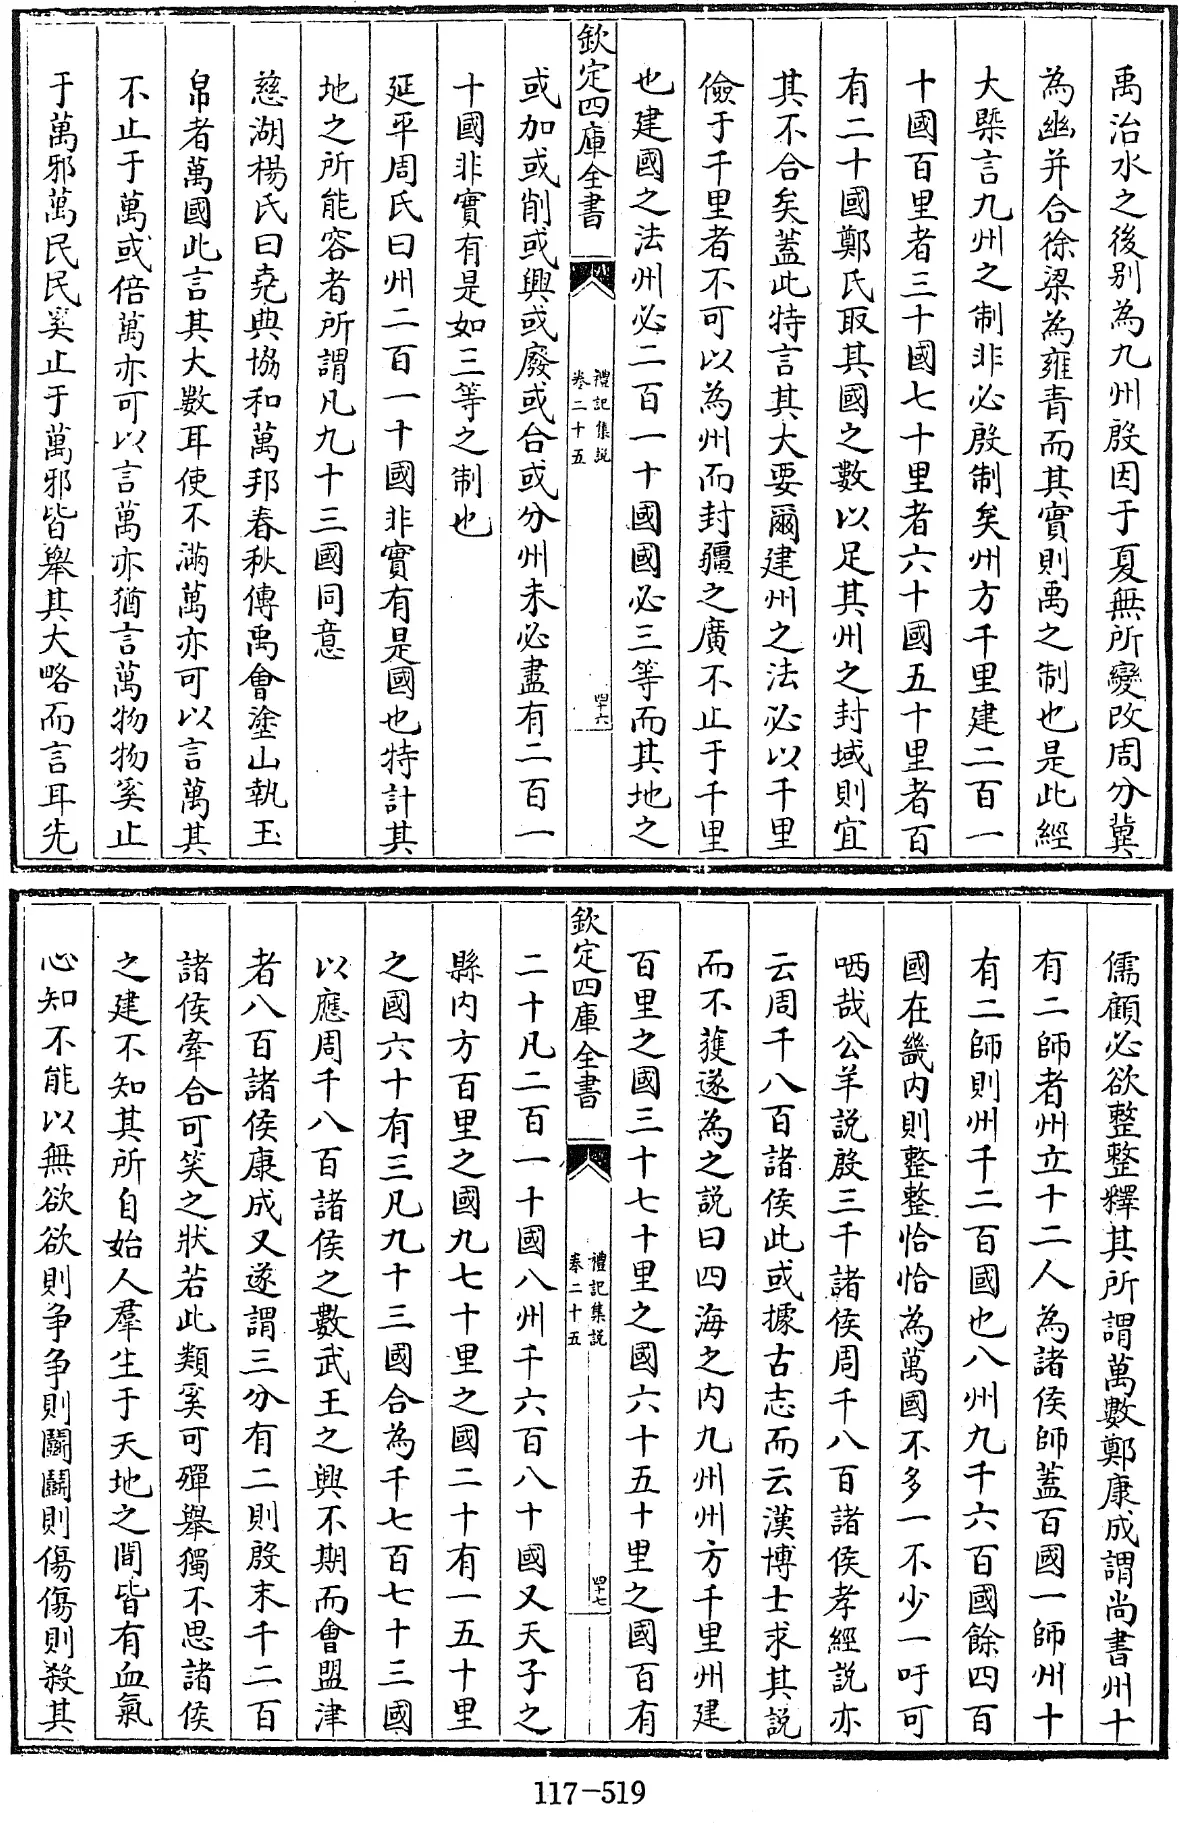 禹治水之後别為九州殷因于夏無所變改周分冀
為幽并合徐梁為雍青而其實則禹之制也是此經
大槩言九州之制非必殷制矣州方千里建二百一
十國百里者三十國七十里者六十國五十里者百
有二十國鄭氏取其國之數以足其州之封域則宜
其不合矣蓋此特言其大要爾建州之法必以千里
儉于千里者不可以為州而封疆之廣不止于千里
也建國之法州必二百一十國國必三等而其地之
欽定四庫全書
禮記集説
卷二十五
四十六
或加或削或興或廢或合或分州未必盡有二百一
十國非實有是如三等之制也
延平周氏曰州二百一十國非實有是國也特計其
地之所能容者所謂凡九十三國同意
慈湖楊氏曰堯典協和萬邦春秋傳禹會塗山執玉
帛者萬國此言其大數耳使不滿萬亦可以言萬其
不止于萬或倍萬亦可以言萬亦猶言萬物物奚止
于萬邪萬民民奚止于萬邪皆舉其大略而言耳先
儒顧必欲整整釋其所謂萬數鄭康成謂尚書州十
有二師者州立十二人為諸侯師蓋百國一師州十
有二師則州千二百國也八州九千六百國餘四百
國在畿内則整整恰恰為萬國不多一不少一吁可
哂哉公羊説殷三千諸侯周千八百諸侯孝經説亦
云周千八百諸侯此或據古志而云漢博士求其説
而不獲遂為之説曰四海之内九州州方千里州建
百里之國三十七十里之國六十五十里之國百有
欽定四庫全書
禮記集説
卷二十五
四十七
二十凡二百一十國八州千六百八十國又天子之
縣内方百里之國九七十里之國二十有一五十里
之國六十有三凡九十三國合為千七百七十三國
以應周千八百諸侯之數武王之興不期而會盟津
者八百諸侯康成又遂謂三分有二則殷末千二百
諸侯牽合可笑之狀若此類奚可殫舉獨不思諸侯
之建不知其所自始人羣生于天地之間皆有血氣
心知不能以無欲欲則争争則鬭鬭則傷傷則殺其
117-519